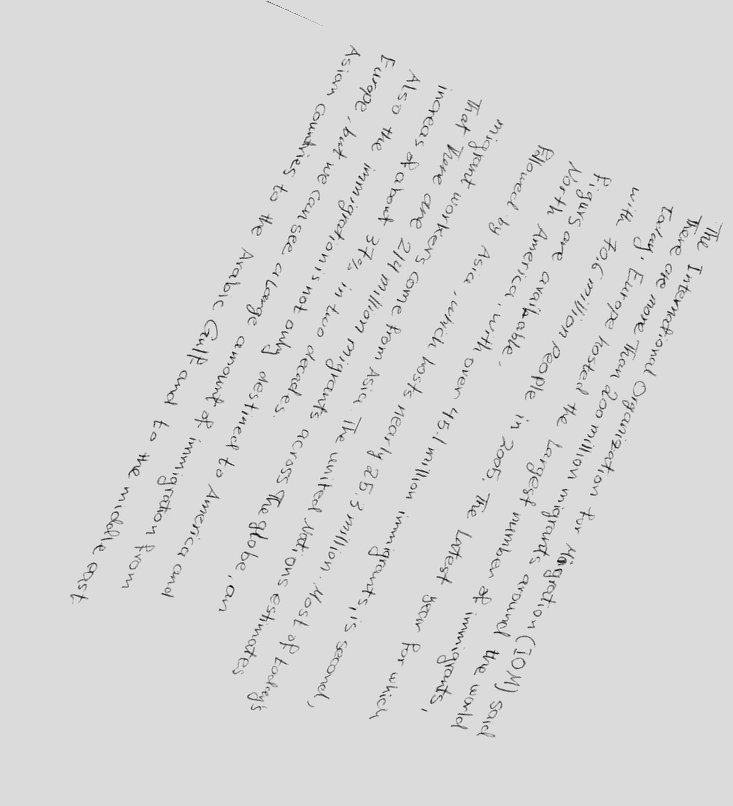 The International Organization for Migration (IOM) said
There are more Than 200 million migrants around the world
Today. Europe hosted the Largest number of immigrants,
with 70.6 million People in 2005. The Latest year for which
Figurs are available.
North America, with over 45.1 million immigrants, is second,
followed by Asia, which hosts nearly 25.3 million. Most of today's
migrant workers come from Asia. The united Nations estimates
That There are 214 million migrants across The globe, an
increas of about 37% in two decades.
Also the immigration is not only destined to America and
Europe, but we can see a Large amount of immigration from
Asian countries to the Arabic Gulf and to the middle east